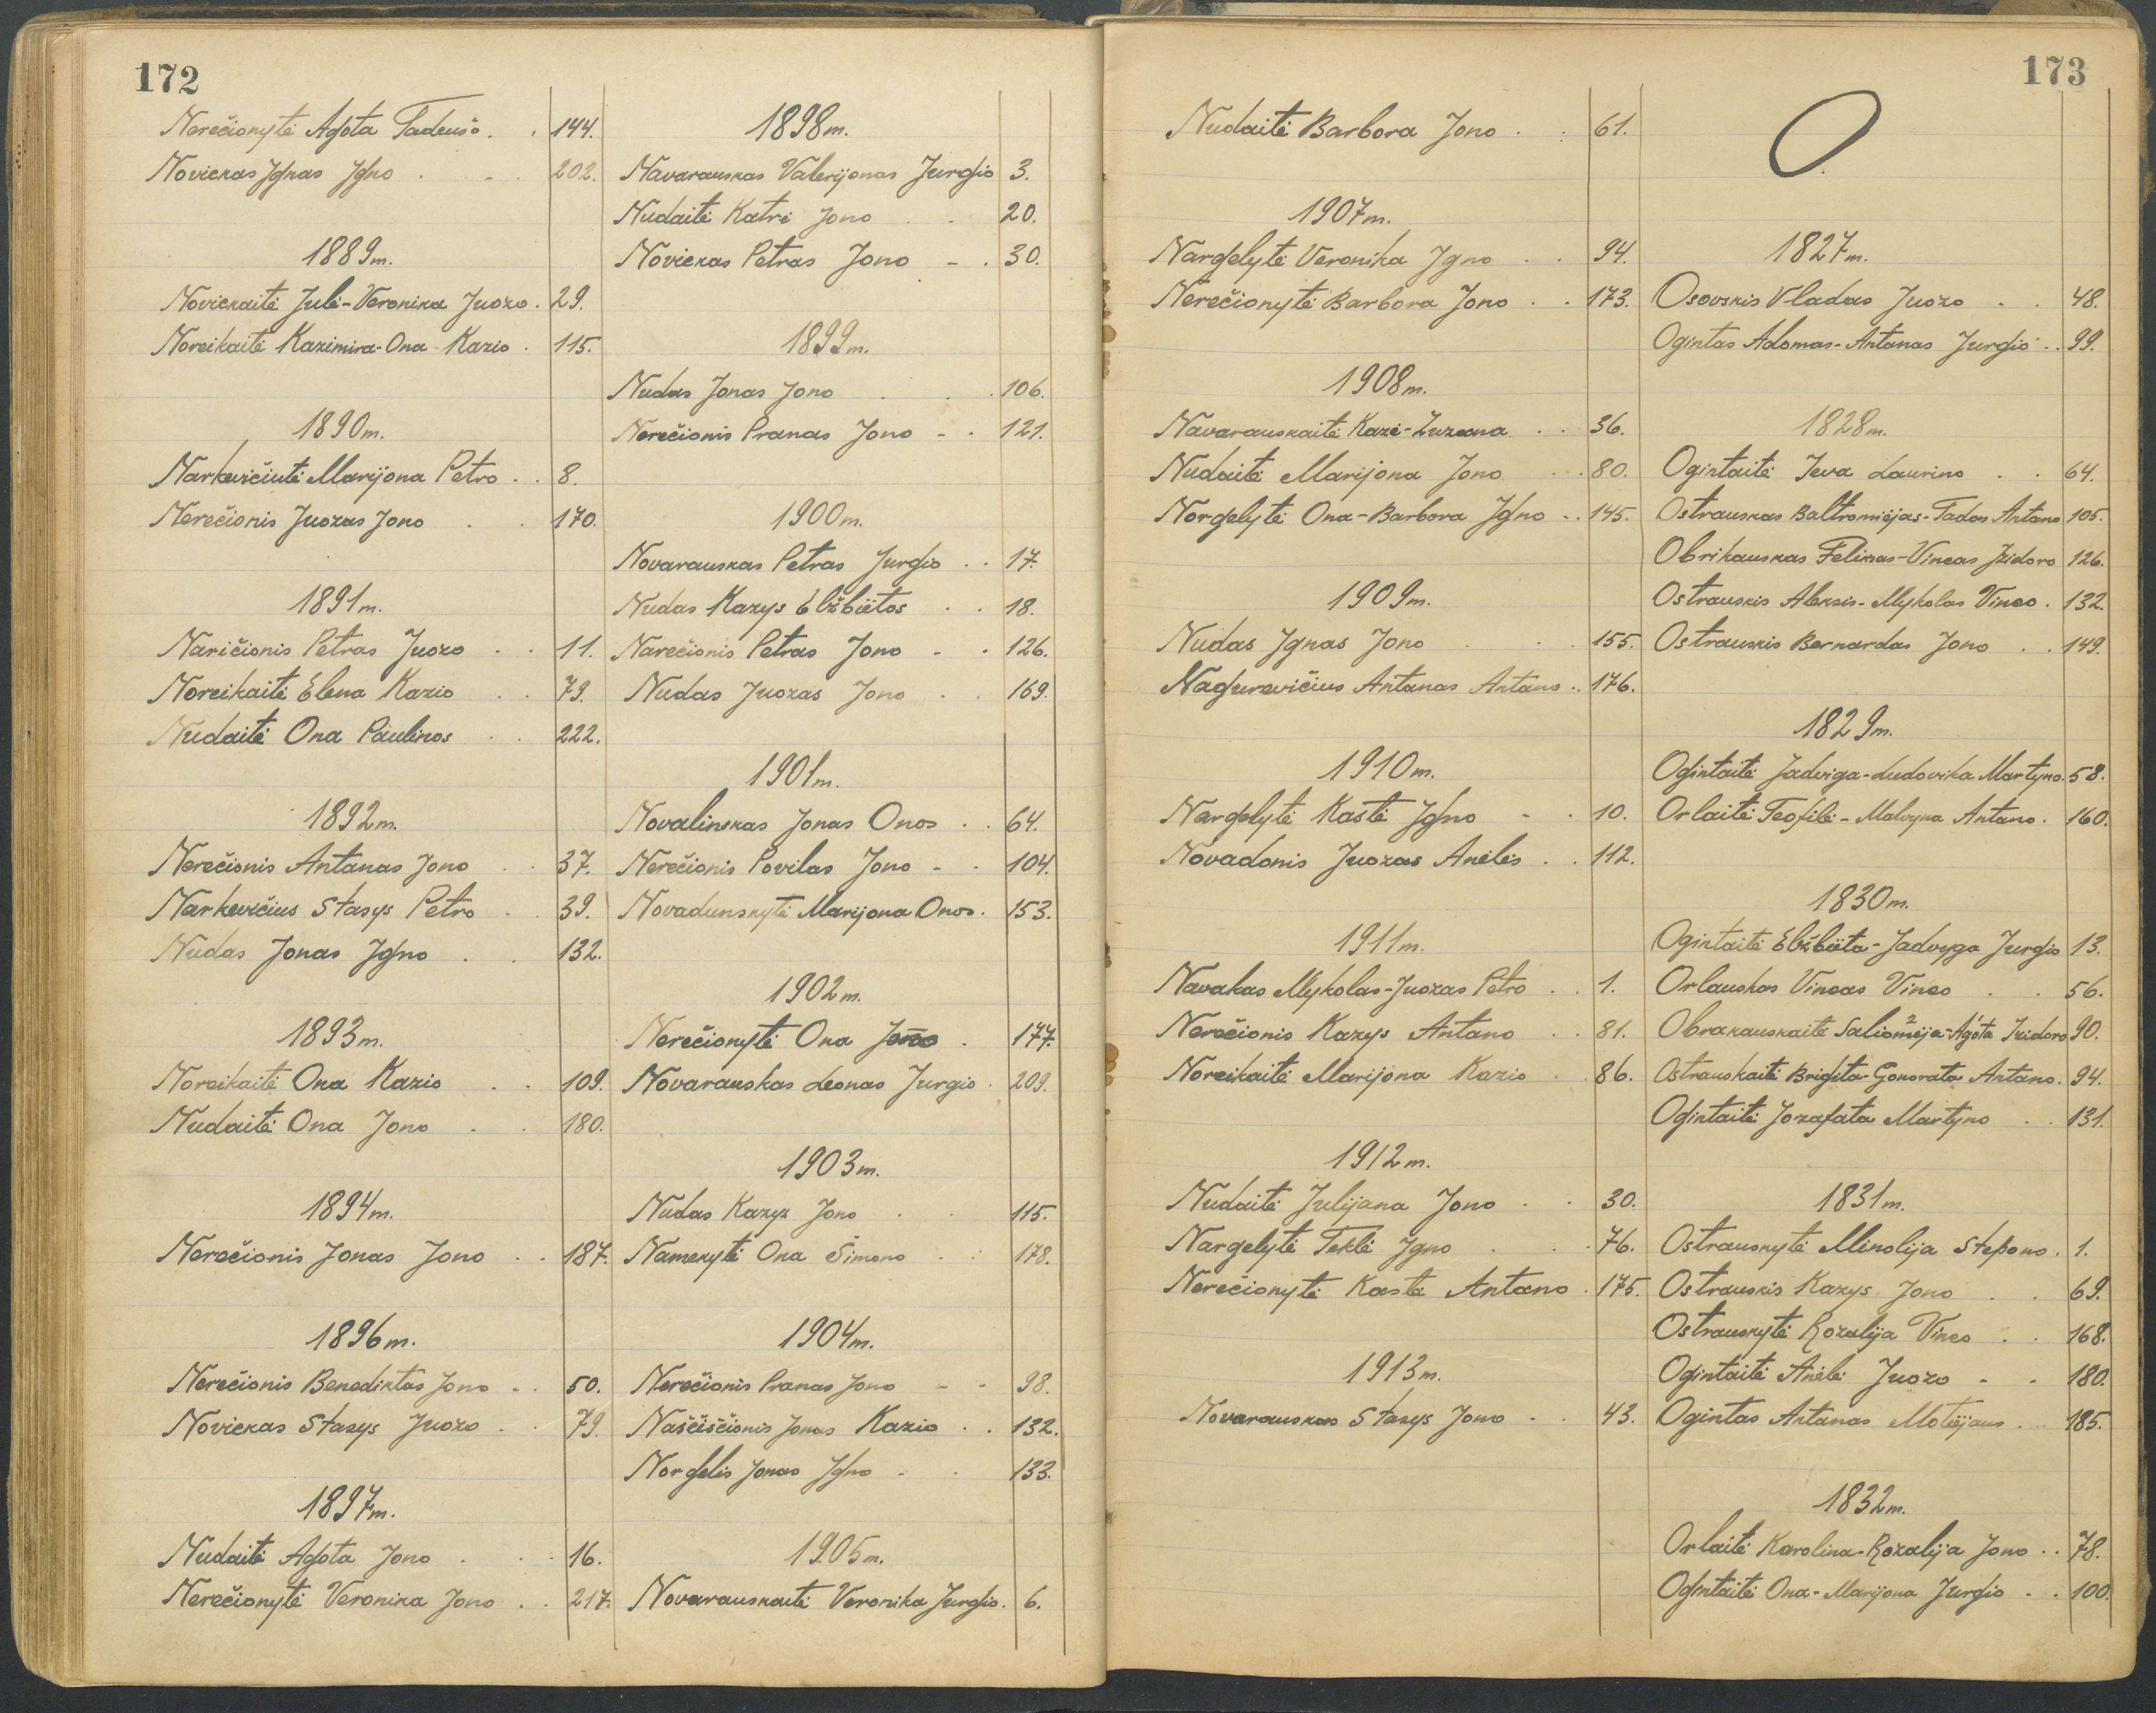 172
Nerečionytė Agota Tadeušo. . 144.
Novickas Jgnas Jgno . . . 202.
1889m.
Novickaitė Julė-Veronika Juozo. 29.
Noreikaitė Kazimira-Ona Kazio . 115.
1890m.
Narkevičiutė Marijona Petro . . 8.
Nerečionis Juozas Jono . . 170.
1891m.
Naričionis Petras Juozo . . 11.
Noreikaitė Elena Kazio . . 79.
Nudaitė Ona Paulinos . . 222.
1892m.
Nerečionis Antanas Jono . . 37.
Narkevičius Stasys Petro . . 39.
Nudas Jonas Jgno . . 132.
1893m.
Noreikaitė Ona Kazio . . 109.
Nudaitė Ona Jono . . 180.
1894m.
Nerečionis Jonas Jono . . 187.
1896m.
Nerečionis Benediktas Jono . . 50.
Novickas Stasys Juozo . . 79.
1897m.
Nudaitė Agota Jono . . . 16.
Nerečionytė Veronika Jono . . 217.
1898m.
Navarauskas Valerijonas Jurgio 3.
Nudaitė Katrė Jono . . 20.
Novickas Petras Jono - . 30.
1899m.
Nudas Jonas Jono . . . 106.
Nerečionis Pranas Jono - . 121.
1900m.
Novarauskas Petras Jurgio . . 17.
Nudas Kazys Elžbiëtos . . 18.
Narečionis Petras Jono - . 126.
Nudas Juozas Jono . . 169.
1901m.
Novalinskas Jonas Onos . . 64.
Nerečionis Povilas Jono - . 104.
Novadunskytė Marijona Onos. 153.
1902m.
Nerečionytė Ona Jono . 177.
Novarauskas Leonas Jurgio . 209.
1903m.
Nudas Kazys Jono . . 115.
Namekytė Ona Simono . . 178.
1904m.
Nerečionis Pranas Jono - - 98.
Naščiščionis Jonas Kazio . . 132.
Norgelis Jonas Jgno - . 133.
1905m.
Novarauskaitė Veronika Jurgio. 6.
173
Nudaitė Barbora Jono . . 61.
1907m.
Nargelytė Veronika Jgno . . 94.
Nerečionytė Barbora Jono . . 173.
1908m.
Navarauskaitė Kazė-Zuzana . . 36.
Nudaitė Marijona Jono . . 80.
Norgelytė Ona-Barbora Jgno . . 145.
1909m.
Nudas Jgnas Jono . . . 155.
Nagurevičius Antanas Antano . . 176.
1910m.
Nargelytė Kastė Jgno - . 10.
Novadonis Juozas Anelės . . 112.
1911m.
Navakas Mykolas-Juozas Petro . . 1.
Nerečionis Kazys Antano . . 81.
Noreikaitė Marijona Kazio . . 86.
1912m.
Nudaitė Julijana Jono . . 30.
Nargelytė Teklė Jgno . . . 76.
Nerečionytė Kastė Antano . 175.
1913m.
Novarauskas Stasys Jono . . 43.
O.
1827m.
Osovskis Vladas Juozo . . 48.
Ogintas Adomas-Antanas Jurgio . . 99.
1828m.
Ogintaitė Jeva Laurino . . 64.
Ostrauskas Baltromiėjas-Tadas Antano 105.
Obrikauskas Feliksas-Vincas Jzidoro 126.
Ostrauskis Aleksis-Mykolas Vinco . 132.
Ostrauskis Bernardas Jono . . 149.
1829m.
Ogintaitė Jadviga-Ludovika Martyno. 58.
Orlaitė Teofilė-Malvyna Antano . 160.
1830m.
Ogintaitė Elžbiëta-Jadvyga Jurgio 13.
Orlauskas Vincas Vinco . . 56.
Obrakauskaitė Saliomėja²-Agota¹ Jzidoro 90.
Ostrauskaitė Brigita-Gonorata Antano. 94.
Ogintaitė Jozafata Martyno . . 131.
1831m.
Ostrauskytė Minolija Stepono . 1.
Ostrauskis Kazys Jono . . 69.
Ostrauskytė Rozalija Vinco . . 168.
Ogintaitė Anelė Juozo - . 180.
Ogintas Antanas Motiėjaus . . 185.
1832m.
Orlaitė Karolina-Rozalija Jono . . 78.
Ogintaitė Ona-Marijona Jurgio - . 100.